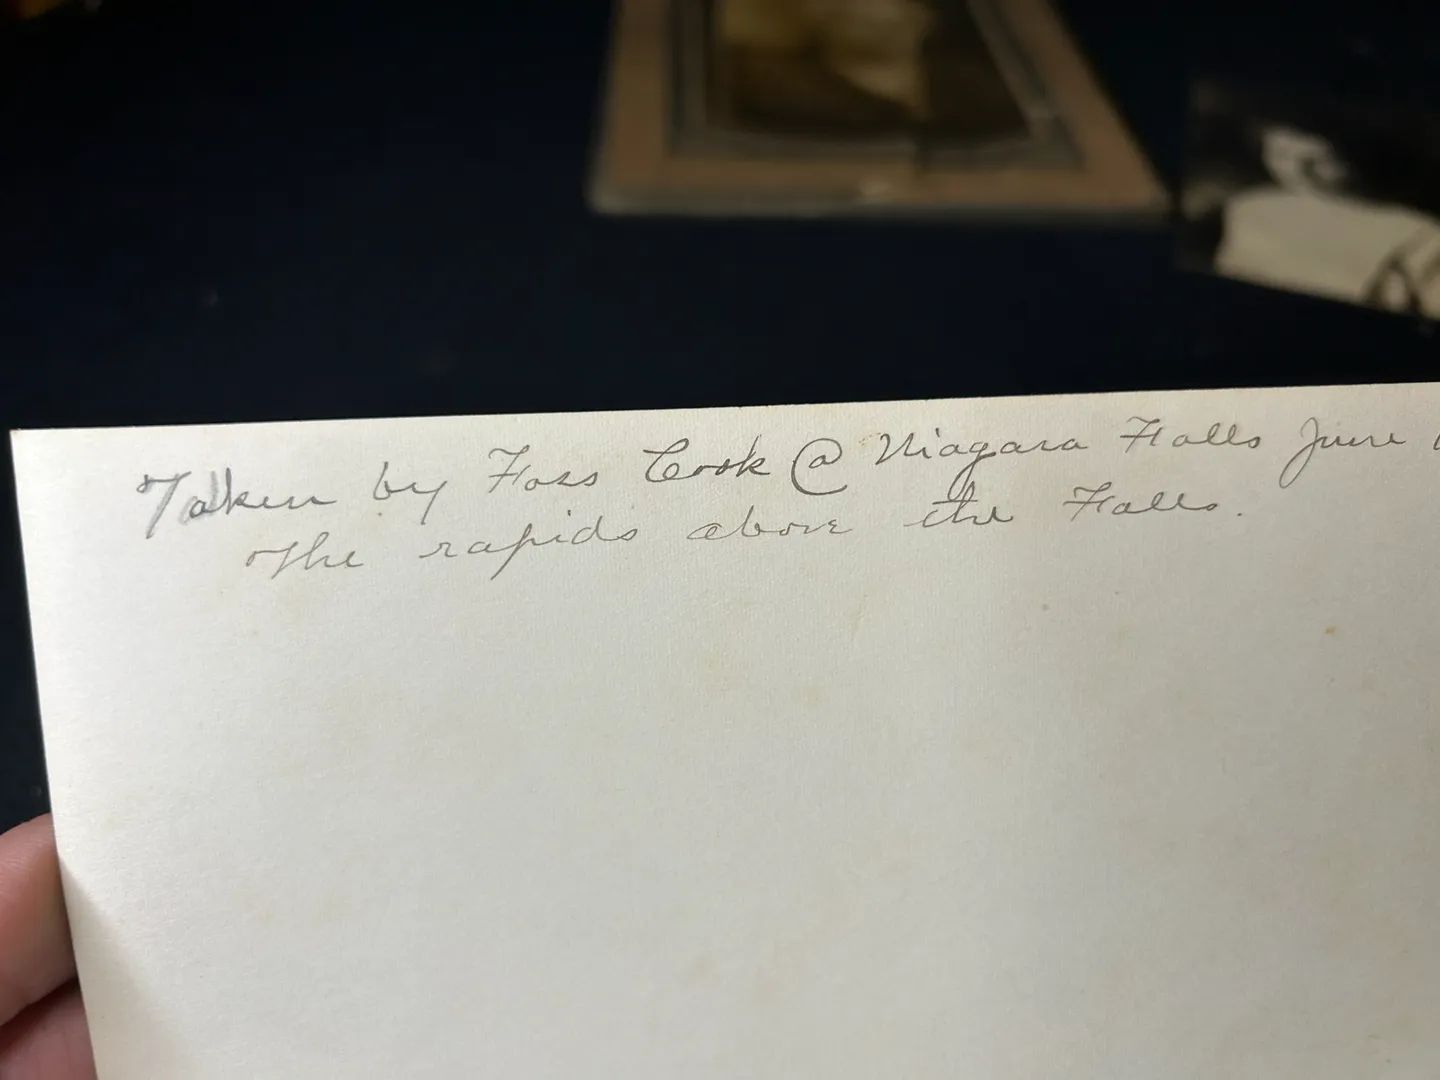 Taken by Foss Cook @ Niagara Falls June
The rapids above the Falls.